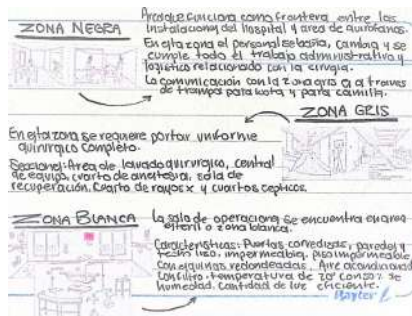 ZONA NEGRA
Area que funciona como frontera entre las
instalaciones del hospital y area de quirofanos.
En esta zona el personal se baña, cambia y se
cumple todo el trabajo administrativo y
logistico relacionado con la cirugia.
La comunicación con la zona gris es a traves
de trampa para bota y para camilla.
ZONA GRIS
En esta zona se requiere portar uniforme
quirurgico completo.
Secciones: Area de lavado quirurgico, central
de equipo, cuarto de anestesia, sala de
recuperación. Cuarto de rayos x y cuartos cepticos.
ZONA BLANCA
La sala de operaciones se encuentra en area
esteril o zona blanca.
Caracteristicas: Puertas corredizas, paredes y
techo liso, impermeable, piso impermeable
con esquinas redondeadas, Aire acondicionado
con filtro, temperatura de 20° con 50% de
humedad. Cantidad de luz eficiente.
Baxter